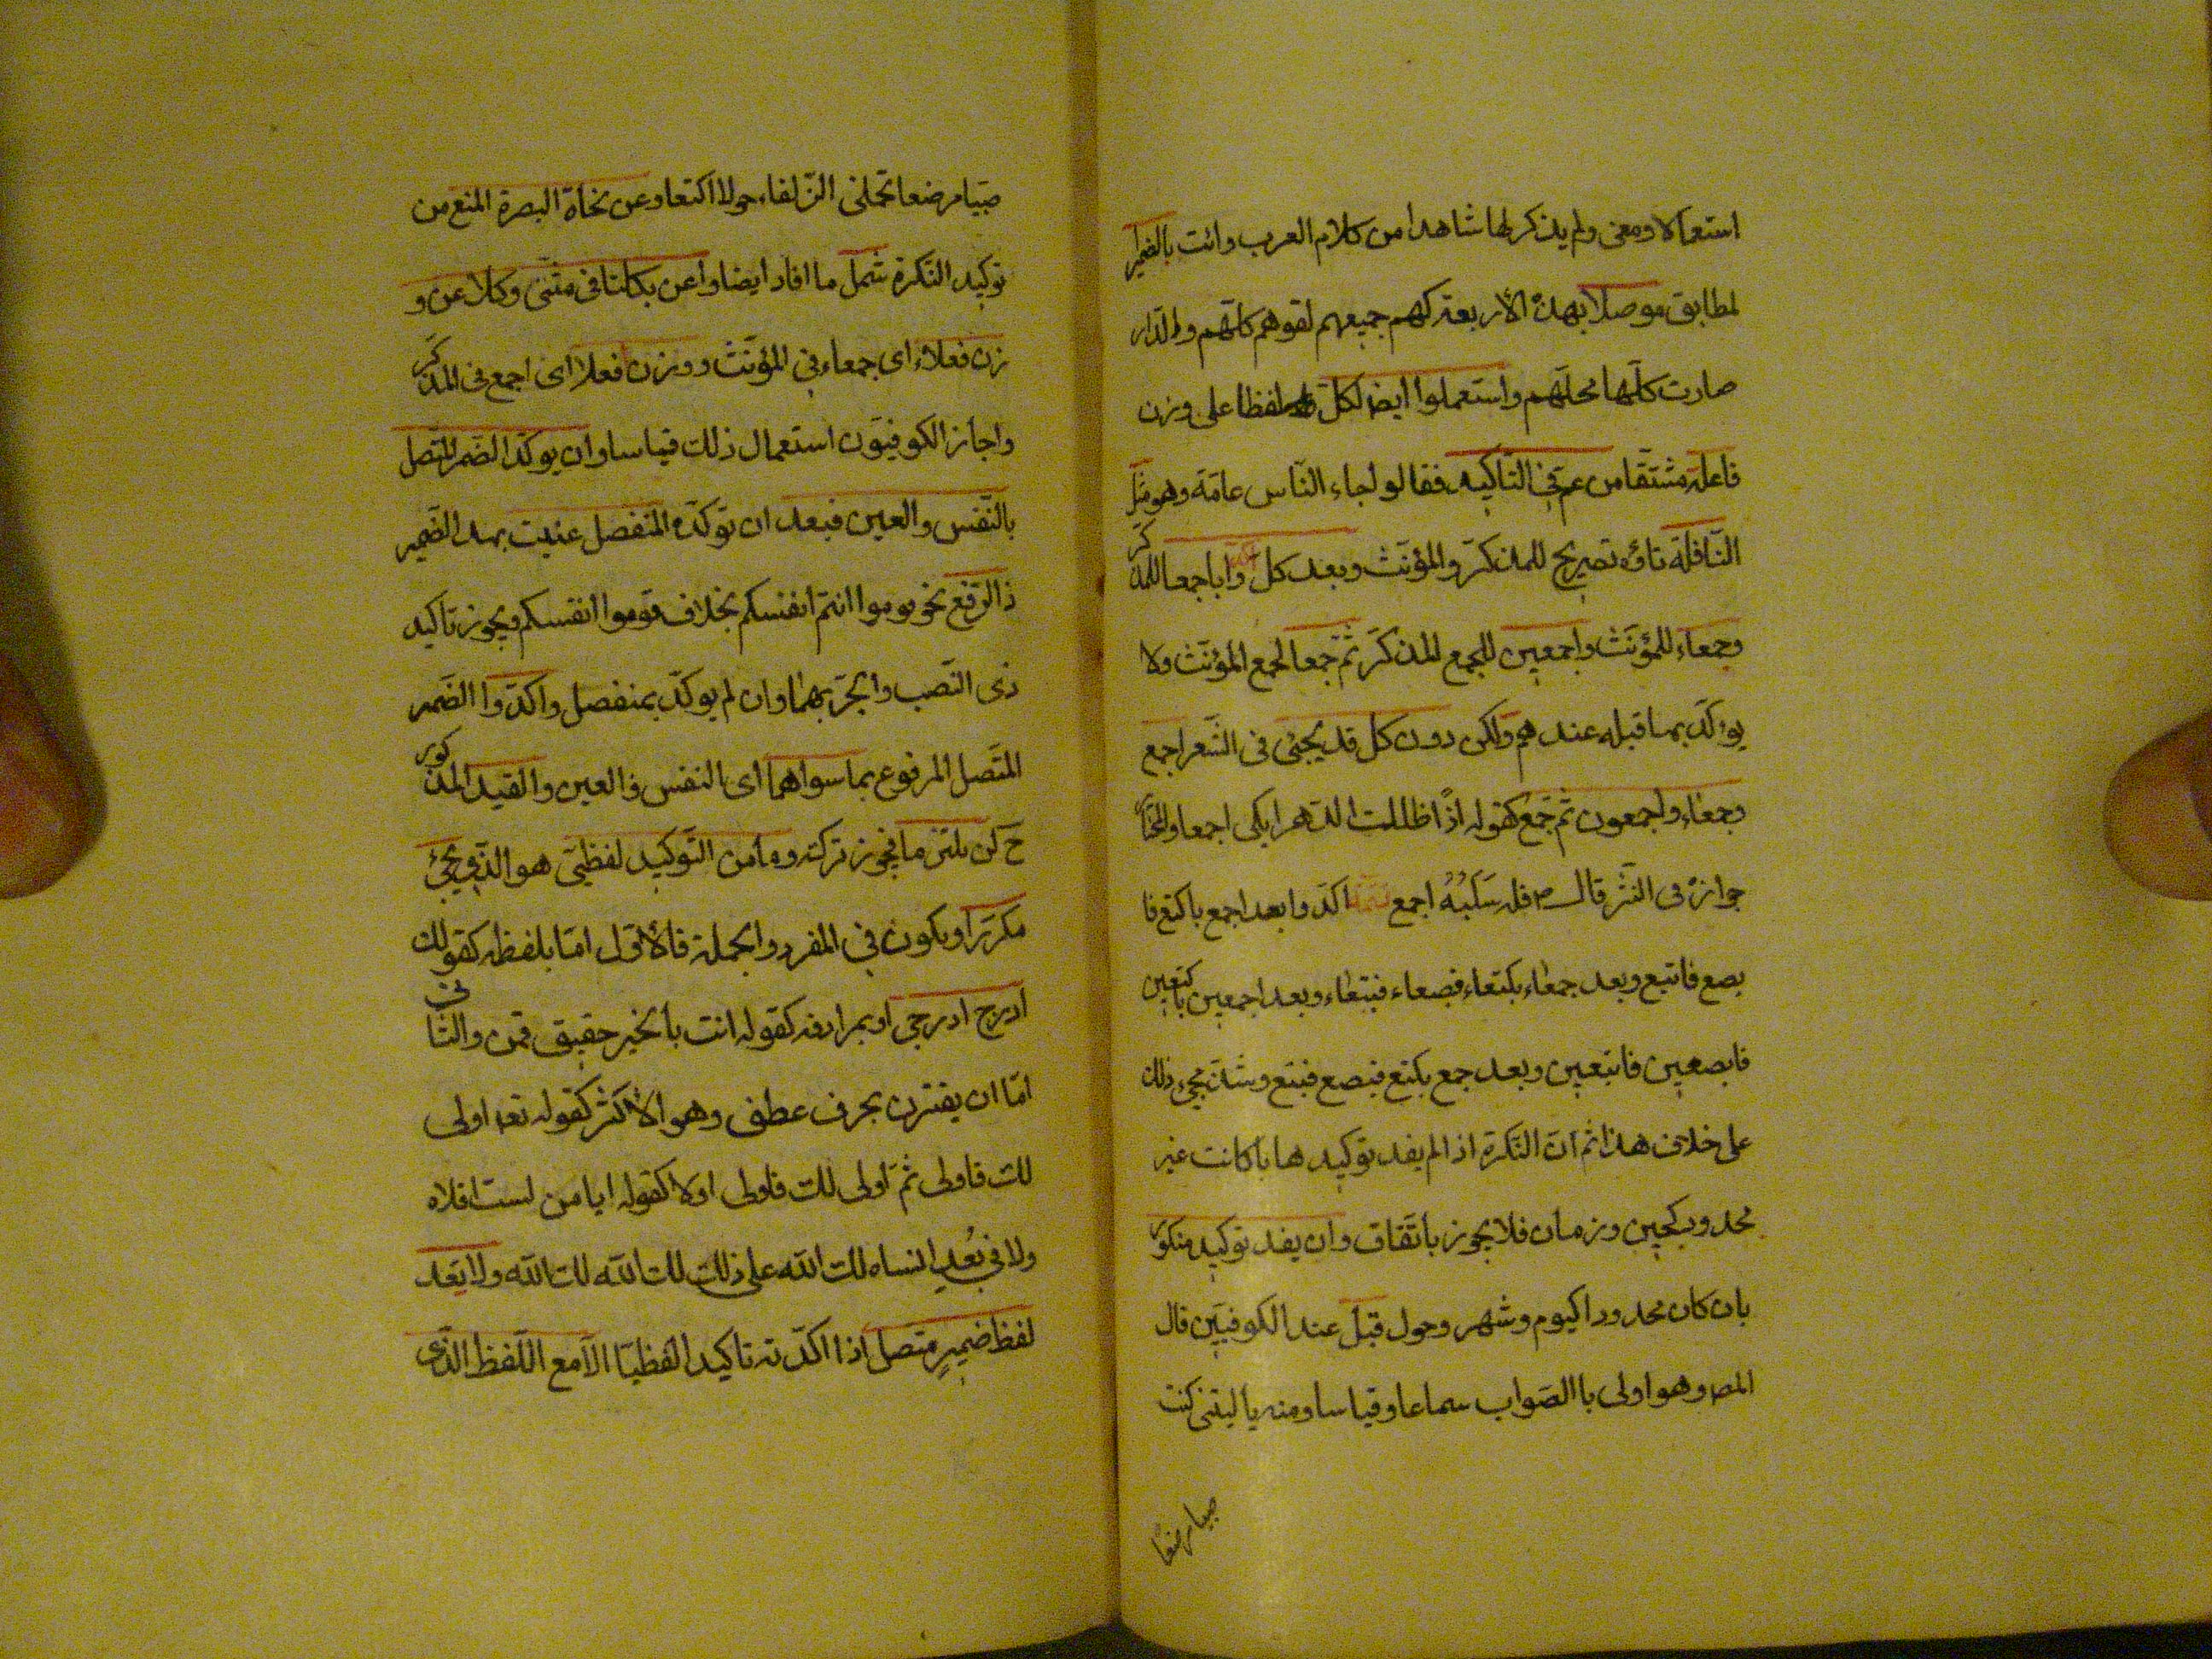 استعمالا ومعنى ولم يذكر لها شاهدا من كلام العرب وائت بالضمير
لمطابق موصلا بهذه الأربعة كهم جميعهم لقوهم كلّهم والدار
صارت كلّها محلّهم واستعملوا ايض لكل لفظا على وزن
فاعلة مشتقّا من عمّ في التّاكيد فقالوا جاء النّاس عامّة وهو مثل
النّافلة تاؤه تصريح للمذكّر والمؤنّث وبعد كل اكّدوا باجمعا للمذكّر
وجمعاء للمؤنّث واجمعين للجمع المذكّر ثمّ جمعا لجمع المؤنّث ولا
يؤكّد بما قبله عندهم ولكن دون كل قد يجئ فى الشّعر اجمع
وجمعاء واجمعون ثم جمع كقوله اذًا ظللت الدهر ابكى اجمعا والمختار
جوازه فى النّثر قال ص فله سَلَبُهُ اجمع تتمة اكدوا بعد اجمع باكتع فا
بصع فابتع وبعد جمعاء بكتعاء فبصعاء فبتعاء وبعد اجمعين باكتعين
فابصعين فابتعين وبعد جمع بكتع فبصع فبتع وشذ مجئ ذلك
على خلاف هذا ثم انّ النّكرة اذا لم يفد توكيدها با كانت غير
محدود كحين وزمان فلا يجوز باتّفاق وان يفد توكيد منكور
بان كان محدودا كيوم وشهر وحول قبل عند الكوفيّين قال
المص وهو اولى باالصّواب سماعا وقياسا ومنه يا ليتنى كنت
صبيا مرضعا
صبيّا مرضعا تحملنى الذّلفاء حولا اكتعا وعن نحاة البصرة المنع من
توكيد النّكرة شمل ما افاد ايضا واغن بكلتا فى مثنّى وكلا عن و
زن فعلاء اى جمعاء فى المؤنّث ووزن افعلا اى اجمع فى المذكّر
واجاز الكوفيّون استعمال ذلك قياسا وان يوكّد الضّمر المتّصل
بالنّفس والعين فبعد ان توكّده المنفصل عنيت بهذا الضّمير
ذا الرّفع نحو قوموا انتم انفسكم بخلاف قوموا انفسكم ويجوز تاكيد
ذى النّصب والجرّ بهما وان لم يوكّد بمنفصل واكدّوا الضّمر
المتّصل المرفوع بما سواهما اى النفس والعين والقيد المذكور
ح لن يلتزما فيجوز تركه وما من التّوكيد لفظيّ هو الذى يجئ
مكرّرا ويكون فى المفرد والجملة فالأوّل امّا بلفظه كقولك
ادرج ادرجى او بمرادفه كقوله انت بالخير حقيق قمن والثّانى
امّا ان يقترن بحرف عطف وهو الأكثر كقوله تعه اولى
لك فاولى ثمّ اولى لك فاولى او لا كقوله ايا من لست اقلاه
ولا فى بُعدٍ انساه لك اللّه على ذلك لك اللّه لك اللّه ولا تعد
لفظ ضميرٍ متصل اذا اكّدته تاكيدا لفظيّا الّا مع اللّفظ الذّى